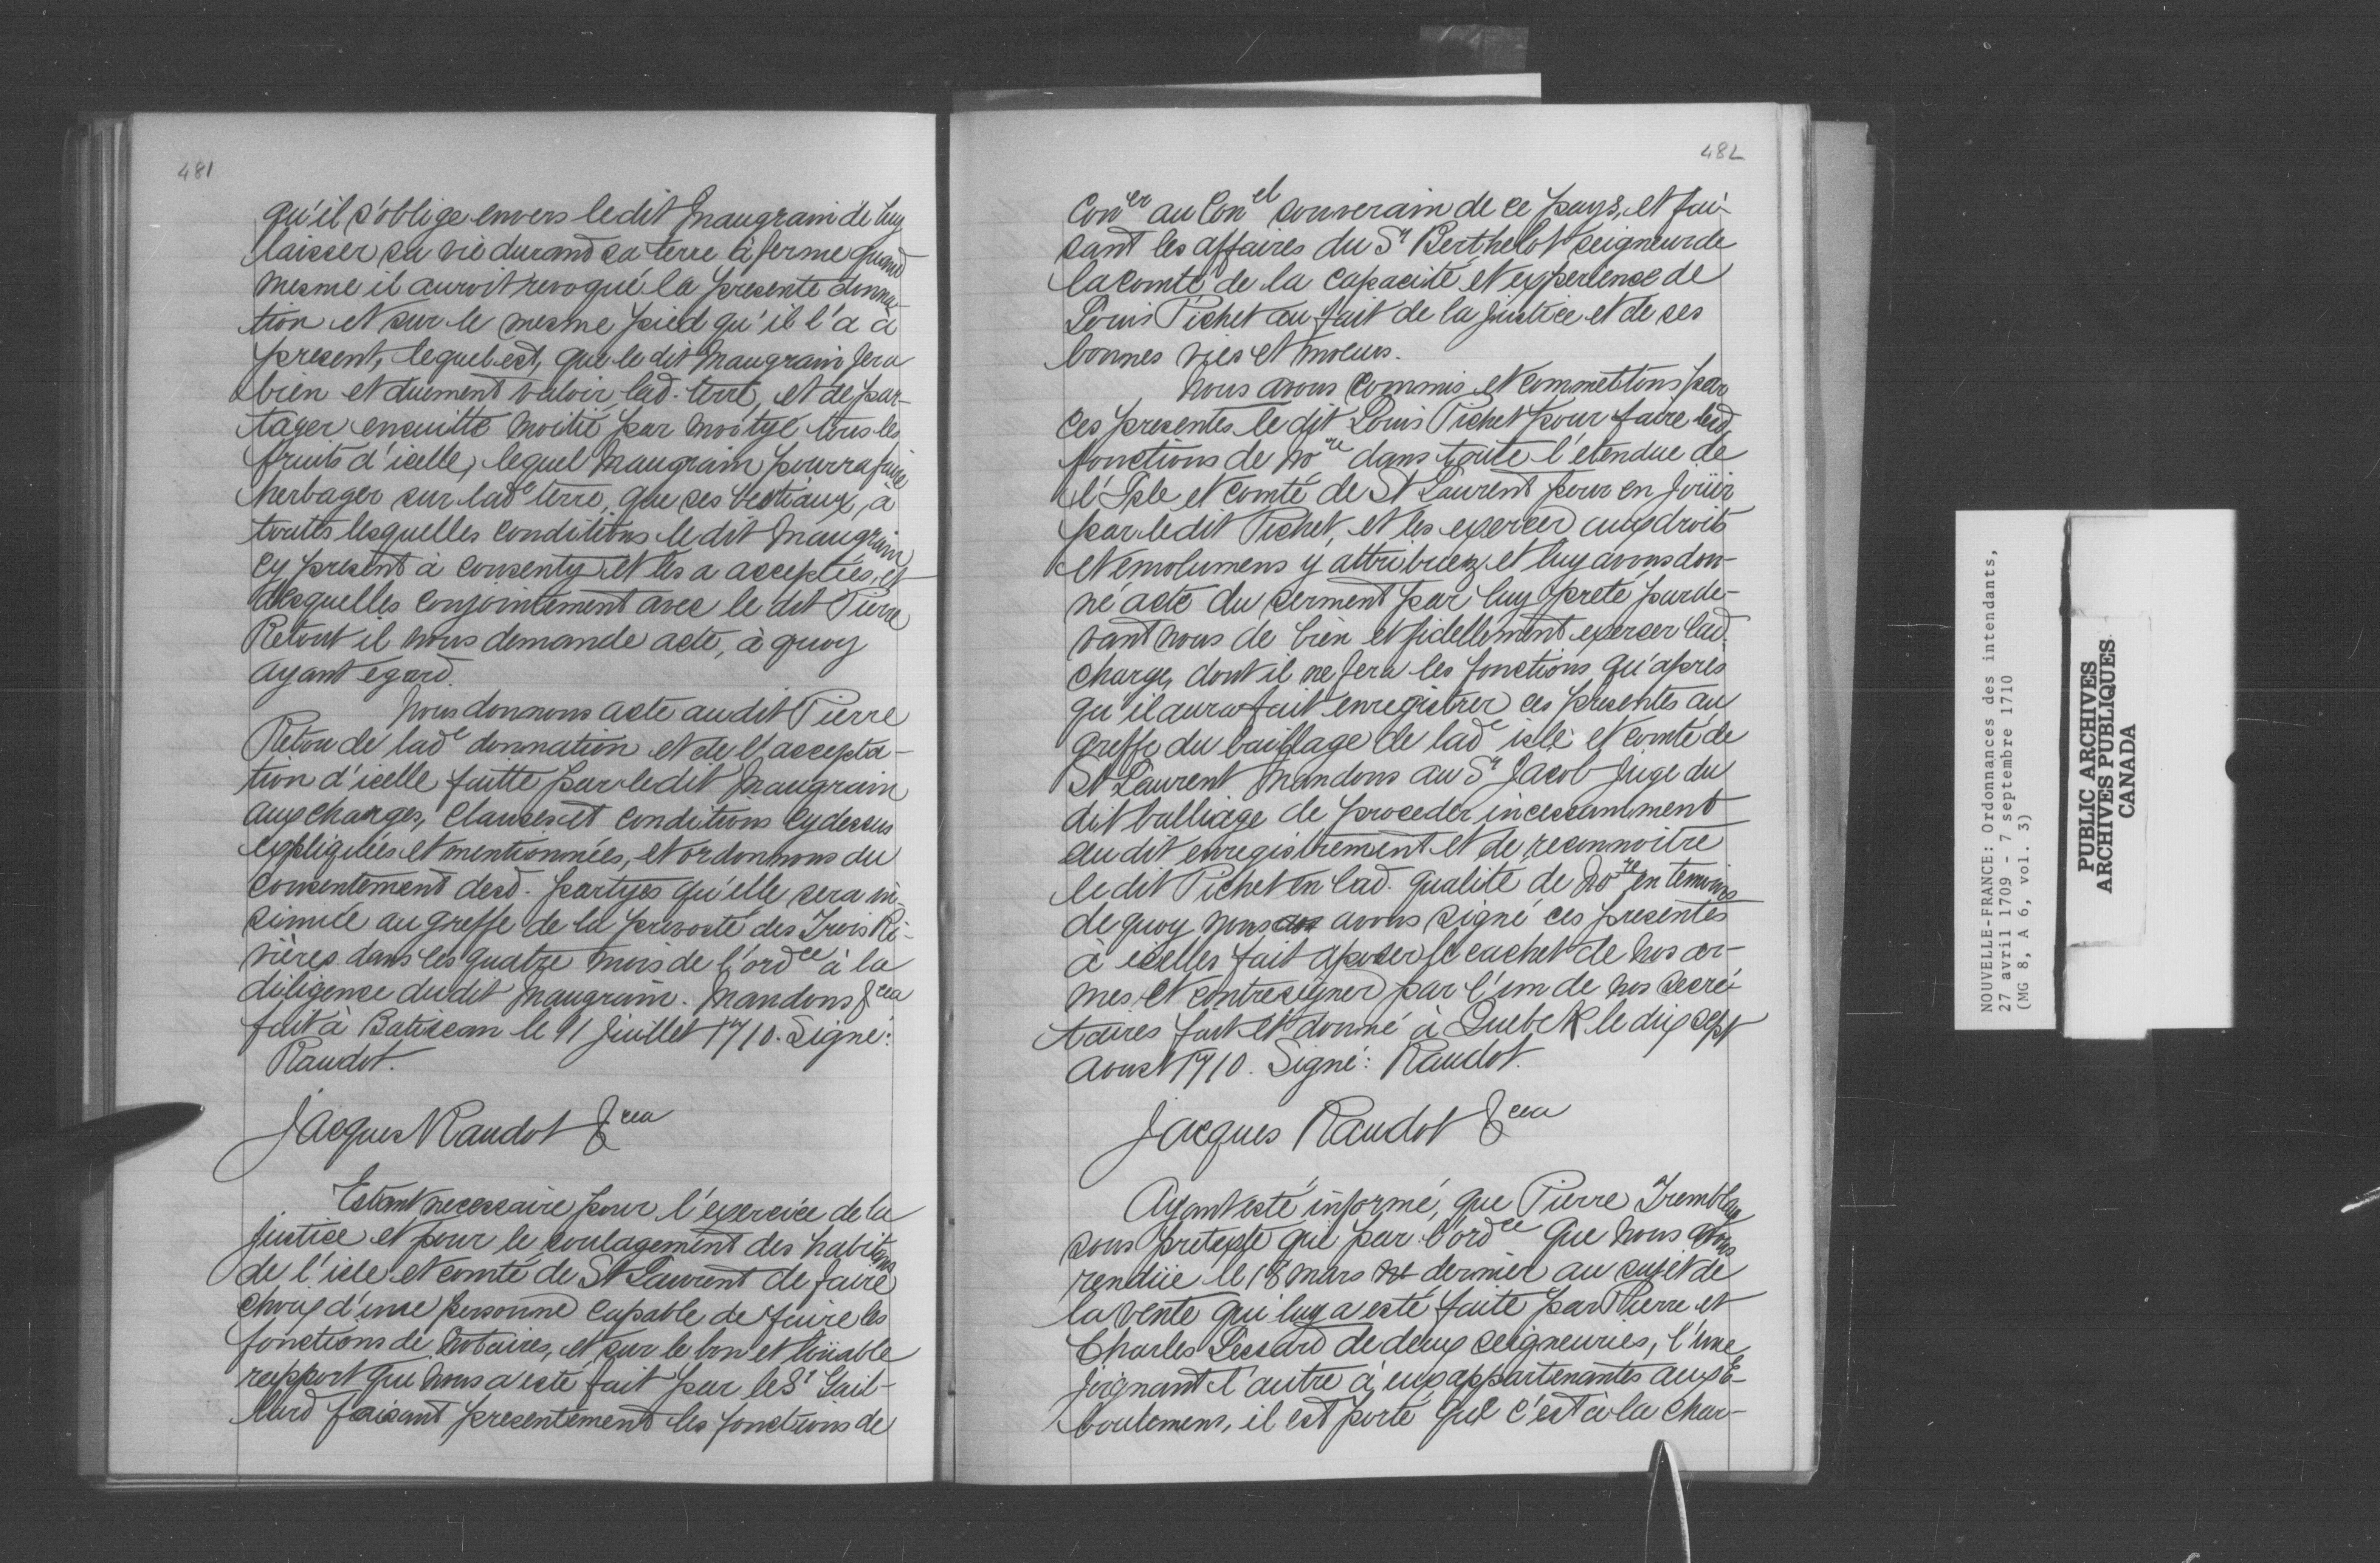 481
qu'il s'oblige envers ledit Maugrain de luy
laisser sa vie durand sa terre à ferme quand
mesme il auroit revoqué la presente donna-
tion et sur le mesme pied qu'il l'a à
present, lequel est, que le dit Maugrain fera
bien et duement valoir lad. terre, et de par-
tager ensuitte moitié par moityé tous les
fruits d'icelle, lequel Maugrain pourra faire
herbager sur lade terre, que ses bestiaux, à
toutes lesquelles conditions le dit Maugrain
cy present à consenty et les a acceptées, et
desquelles conjointement avec le dit Pierre
Retout il nous demande acte, à quoy
ayant egard.
Nous donnons acte au dit Pierre
Retou de lade donnation et de l'accepta-
tion d'icelle faitte par ledit Maugrain
aux charges, clauses et conditions cy dessus
expliquées et mentionnées, et ordonnons du
consentement desd. partyes qu'elle sera in-
sinuée au greffe de la prevosté des Trois Ri-
vières dans les quatre mois de l'ordce à la
diligence dudit Maugrain. Mandons &cea
fait à Batiscan le 11 Juillet 1710. Signé:
Raudot.
Jacques Raudot &cea
Estant necessaire pour l'exercice de la
justice et pour le soulagement des habitans
de l'isle et comté de St Laurent de faire
choix d'une personne capable de faire les
fonctions de notaires, et sur le bon et loüable
rapport que nous a esté fait par le Sr Gail-
lard faisant presentement les fonctions de
482
Coner au Conel souverain de ce pays, et fai-
sant les affaires du Sr Berthelot seigneur de
la comté de la capacité et experience de
Louis Pichet au fait de la justice et de ses
bonnes vies et moeurs.
Nous avons commis et commettons par
ces presentes le dit Louis Pichet pour faire lesd.
fonctions de nore dans toute l'etendue de
l'Isle et comté de St Laurent pour en joüir
par ledit Pichet, et les exercer aux droits
et emolumens y attribuez et luy avons don-
né acte du serment par luy preté parde-
vant nous de bien et fidellement exercer lad.
charge, dont il ne fera les fonctions qu'après
qu'il aura fait enregistrer ces presentes au
greffe du baillage de lade isle et comté de
St Laurent Mandons au Sr Jacob Juge du
dit balliage de proceder incessamment
au dit enregistrement et de reconnoitre
le dit Pichet en lad. qualité de nore en temoins
de quoy nous avons signé ces presentes
à icelles fait aposer le cachet de nos ar-
mes et contresigner par l'un de nos secré-
taires fait et donné à Quebek le dix sept
Aoust 1710. Signé: Raudot.
Jacques Raudot &cea
Ayant esté informé, que Pierre Tremblay
sous pretexte que par l'ordce que nous avons
rendüe le 18 mars dernier au sujet de
la vente qui luy a esté faite par Pierre et
Charles Lessard de deux seigneuries, l'une
joignant l'autre à eux appartenantes aux E-
boulemens, il est porté que c'est à la char-
NOUVELLE-FRANCE: Ordonnances des intendants,
27 avril 1709 - 7 septembre 1710
(MG 8, A 6, vol. 3)
PUBLIC ARCHIVES
ARCHIVES PUBLIQUES
CANADA